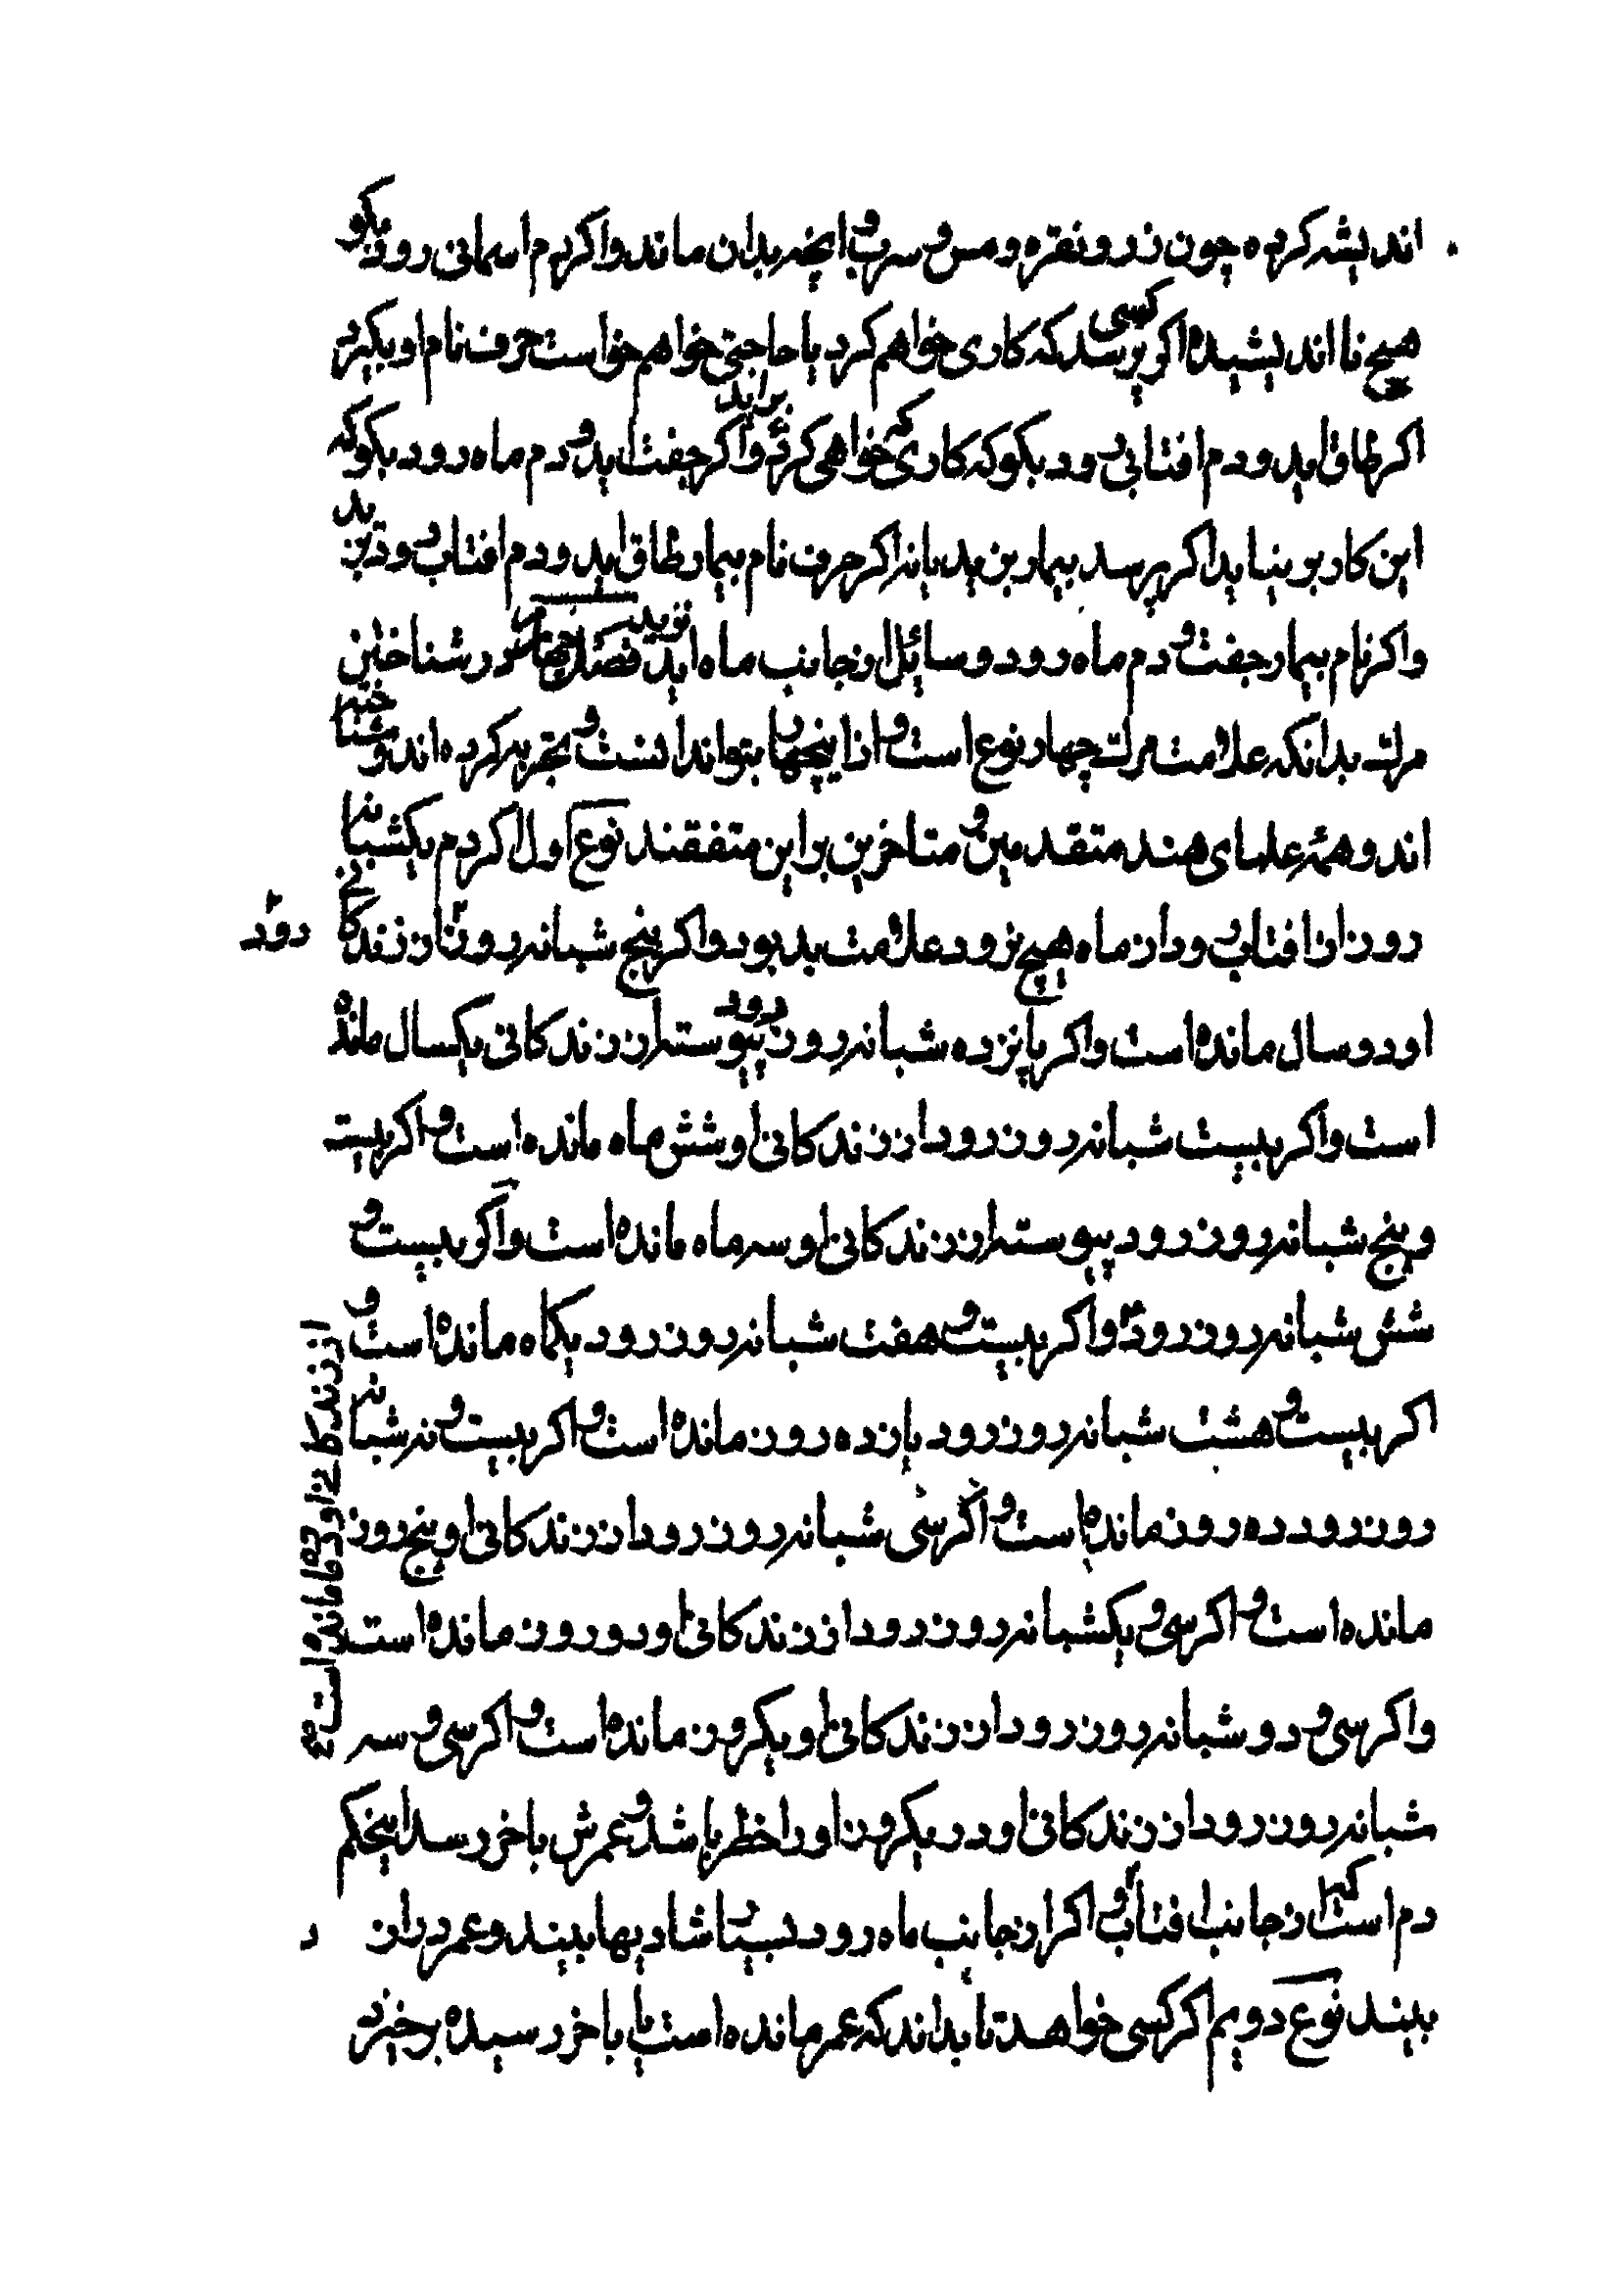 اندیشه کرده چون زر و نقره و مس و سرب و اینچه بدان ماند و اکر دم اسمانی رود بکو
هیچ نا اندیشیده اکر کسی پرسد که کاری خواهم کرد یا حاجتی خواهم خواست حرف نام او بکیرد
اکر طاق اید و دم افتابی رود بکو که کاری که خواهی کرد براید و اکر جفت اید و دم ماه رود بکو که
این کار بر نیاید اکر پرسد بیمار بزید یا نه اکر حرف نام بیمار طاق اید و دم افتاب رود بزید
و اکر نام بیمار جفت و دم ماه رود و سایل از جانب ماه اید نزید فصل چهارم در شناختن
مرک بدانکه علامت مرک چهار نوع است و از اینچهار بتواند انست و تجربه کرده اند و شناخته
اند و همۀ علمای هند متقدمین و متاخرین براین متفقند نوع اول اکر دم یکشبانه
روز از افتاب رود از ماه هیچ نرود علامت بد بود و اکر پنج شبانه روز از زندکانی
رود
او دو سال مانده است و اکر پانزده شبانه روز رود پیوسته از زندکانی یکسال مانده
است و اکر بیست شبانه روز رود از زندکانی او شش ماه مانده است و اکر بیست
و پنج شبانه روز رود پیوسته از زندکانی او سه ماه مانده است و اکر بیست و
شش شبانه روز رود و اکر بیست و هفت شبانه روز رود یکماه مانده است و
از زندکانی او دو ماه مانده است
اکر بیست و هشت شبانه روز رود پانزده روز مانده است و اکر بیست و نه شبانه
روز رود ده روز مانده است و اکر سی شبانه روز رود از زندکانی او پنج روز
مانده است و اکر سی و یکشبانه روز رود از زندکانی او دو روز مانده است
و اکر سی و دو شبانه روز رود از زندکانی او یکروز مانده است و اکر سی و سه
شبانه روز رود از زندکانی او در یکروز او را خطر باشد و عمرش باخر رسد اینحکم
دم است که از جانب افتاب و اکر از جانب ماه رود بسیار شادیها بیند و عمر دراز
بیند نوع دویم اکر کسی خواهد تا بداند که عمر مانده است یا باخر رسیده برخیزد